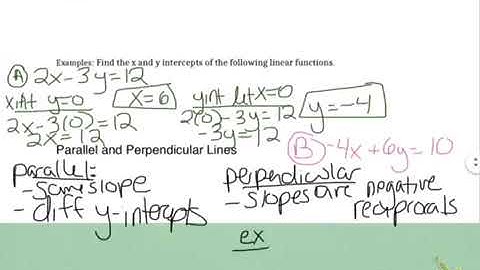 Examples: Find the x and y intercepts of the following linear functions.
Ⓐ 2x-3y=12
xint y=0 x=6 yint let x=0 y=-4
2x-3(0)=12 2(0)-3y=12
2x=12 -3y=12
Parallel and Perpendicular Lines
Ⓑ -4x+6y=10
parallel:
- same slope
- diff y-intercepts
perpendicular
- slopes are negative
reciprocals
ex